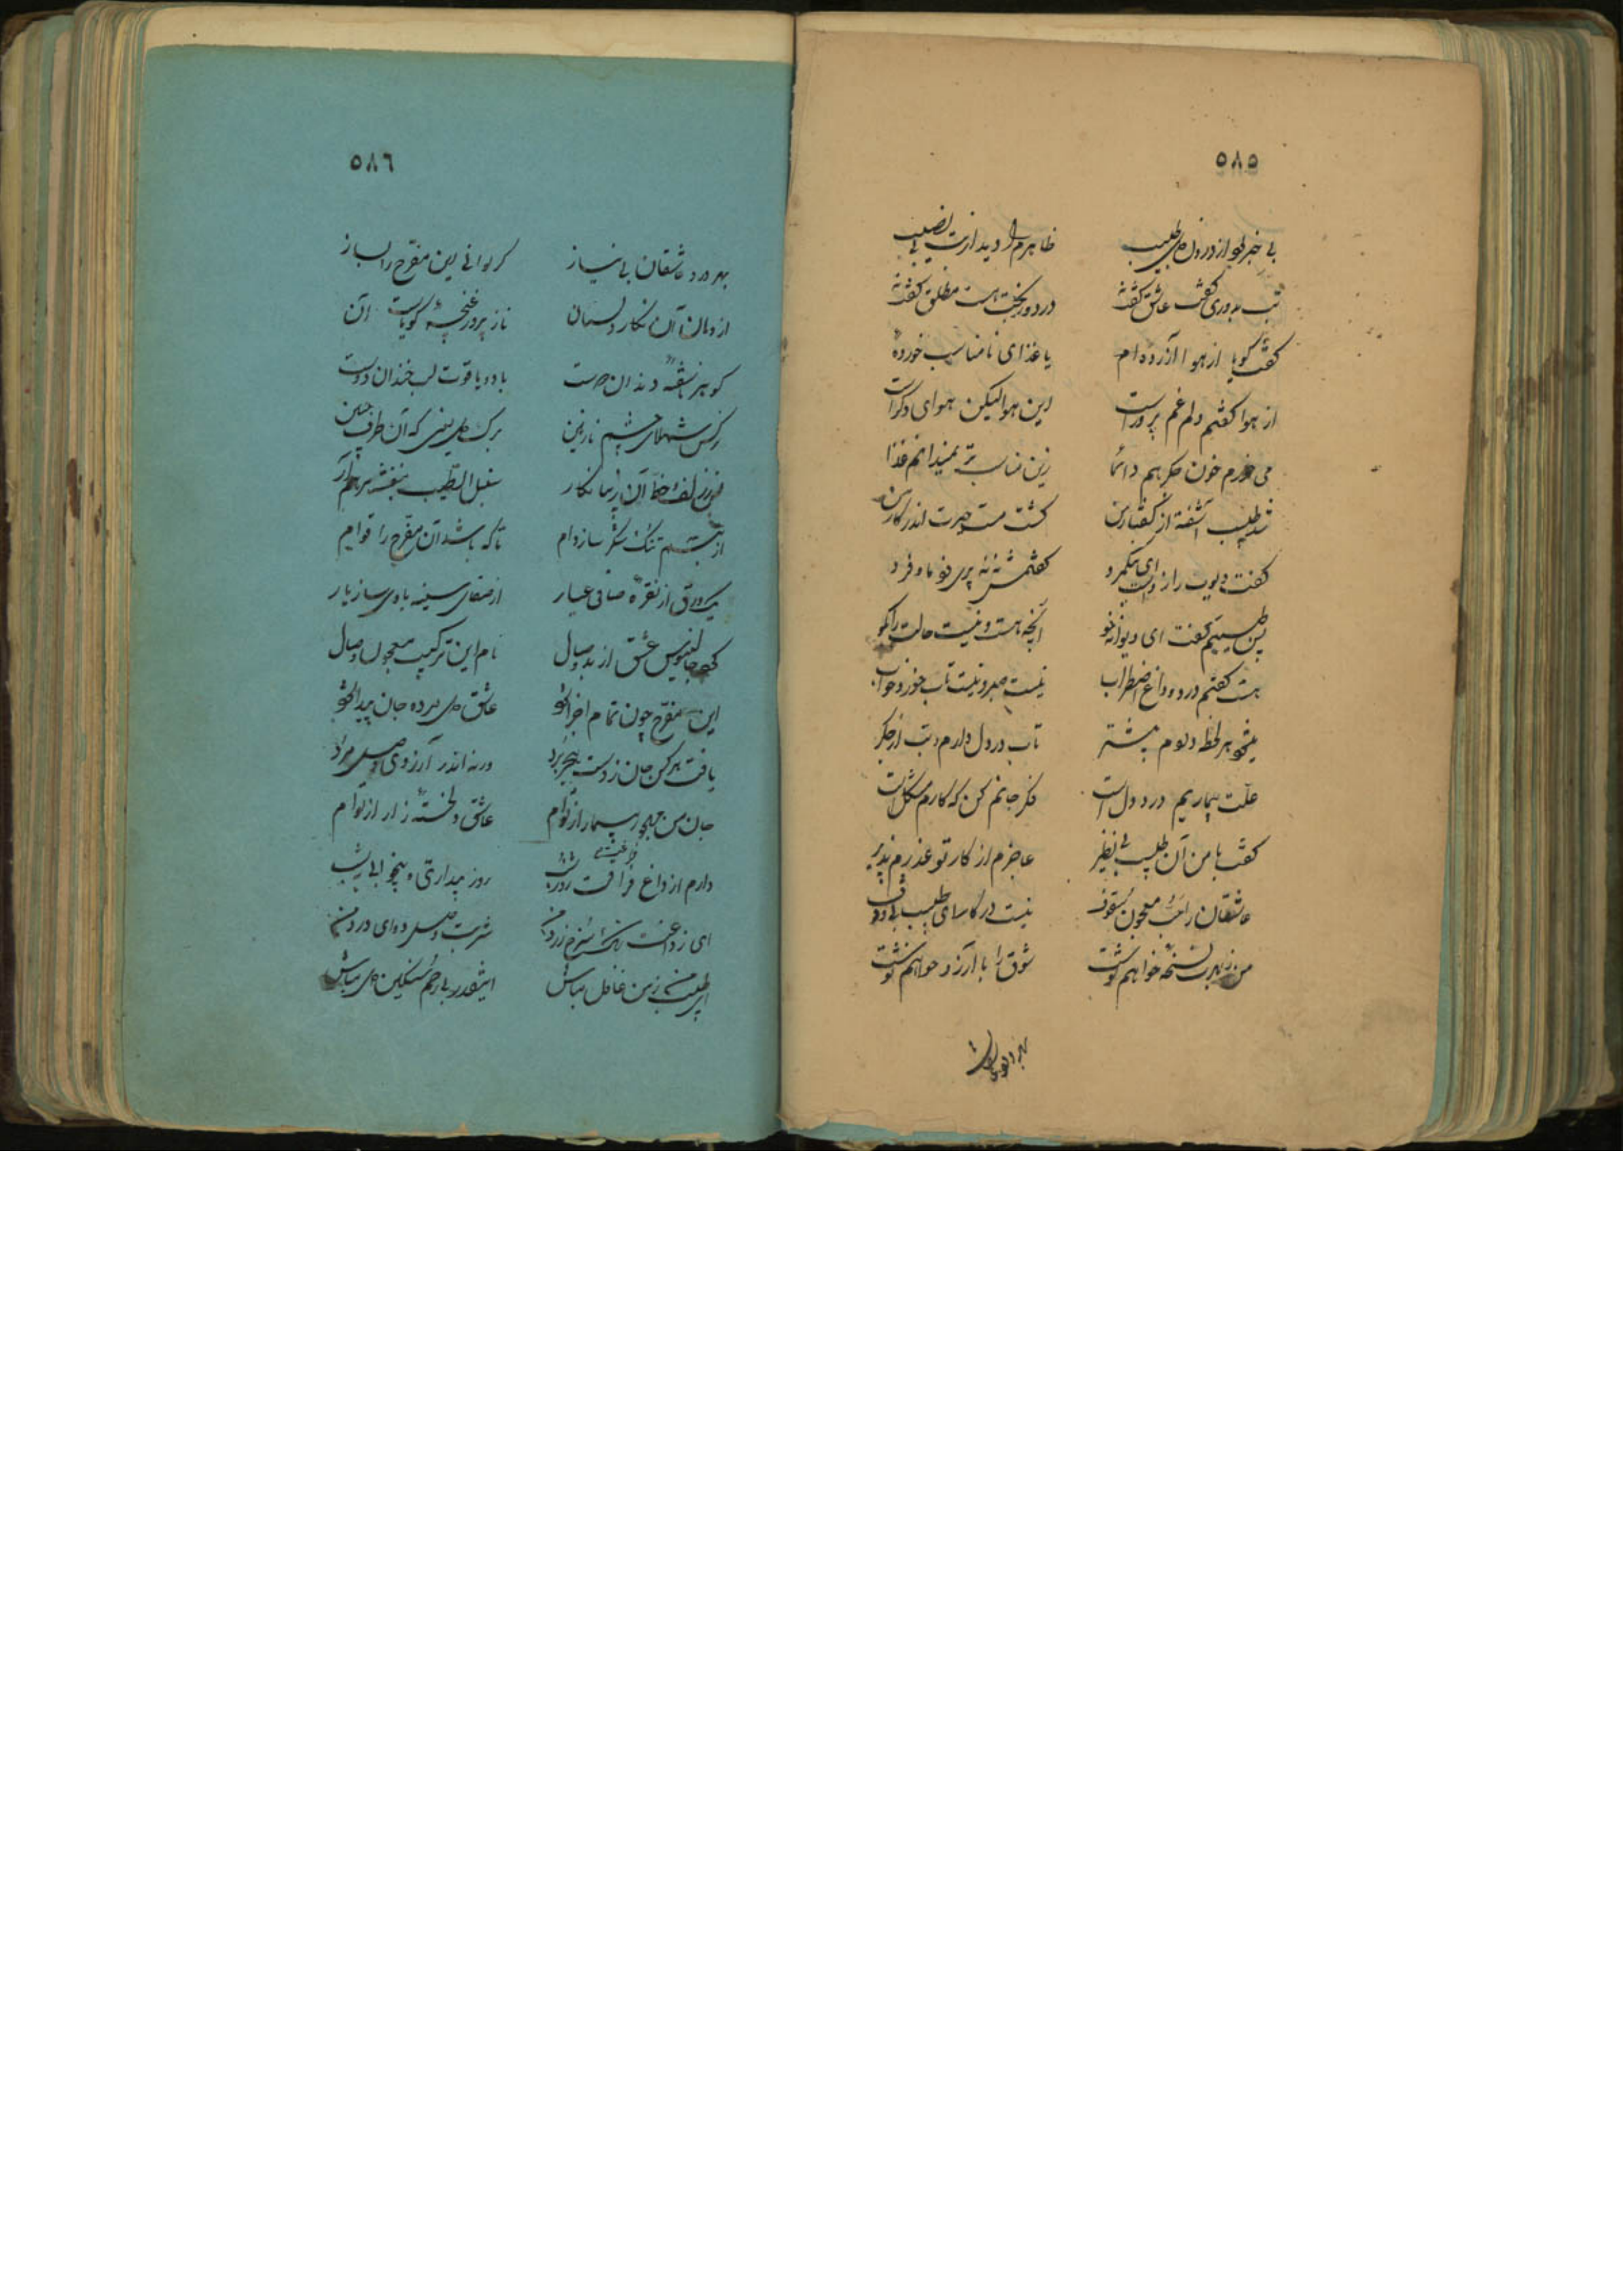 ٥٨٥
بی خبر بود از درون من طبیب ظاهرم را دید از تب بی نصیب
تب نداری گفت عاشق گفته درد دوری گفت هست مطلق گفته
گفت گویا از هوا آزرده ام یا غذای نامناسب خورده
از هوا گفتم دلم غم پرور است این هوا لیکن هوای دگر است
می خورم خون جگر هم دائما زین مناسب تر نمیدانم غذا
شد طبیب آشفته از گفتار من گشت مست حیرت اندر کار من
گفت دیوت راز دست ای نیکمرد گفتمش نه نه پری
پس طبیبم گفت ای دیوانه خو آنچه هست و نیست حالت را بگو
هست گفتم درد و داغ و اضطراب نیست صبر و نیست تاب خورد و خواب
میشود هر لحظه دردم بیشتر تاب در دل دارم و تب از جگر
علت بیماریم درد دل است فکر جانم کن که کارم مشکل است
گفت با من آن طبیب بی نظیر عاجزم از کار تو عذرم پذیر
عاشقان را معجون سفوف نیست در کار ای طبیب بی وقوف
من ز بهرت نسخه خواهم نوشت شوق را با آرزو خواهم نوشت
بهر درد
٥٨٦
بهر درد عاشقان بی نیاز گر توانی این مفرح را بساز
از دهان آن نگار دلستان ناز پرور غنچه گویاست آن
گوهر ناسفته دندان دوست با دو یاقوت لب خندان دوست
نرگس شهلای چشم نازنین برگ گل یعنی که آن طرف جبین
زلف و خط آن زیبا نگار سنبل الطیب و بنفشه برهم آر
از تبسم تنگ شکر ساز وام تا که باشد آن مفرح را قوام
یک ورق از نقره صافی عیار از صفای سینه با وی ساز یار
جالینوس عشق از بد و حال نام این ترکیب معجون وصال
این مفرح چون تمام اجزا شود عاشق دل مرده جان پیدا شود
یافت هر کس جان ز دست هجر برد ورنه اندر آرزوی وصل مرد
جان من مهجور بیمار از توام عاشق دلخسته زار از توام
دارم از داغ فراقت روز و شب روز بیداری و بیخوابی شب
ای ز داغت رنگ سرخم زرد من شربت وصل دوای درد من
ای طبیب من ز من غافل مباش اینقدر بارحم سنگین دل مباش